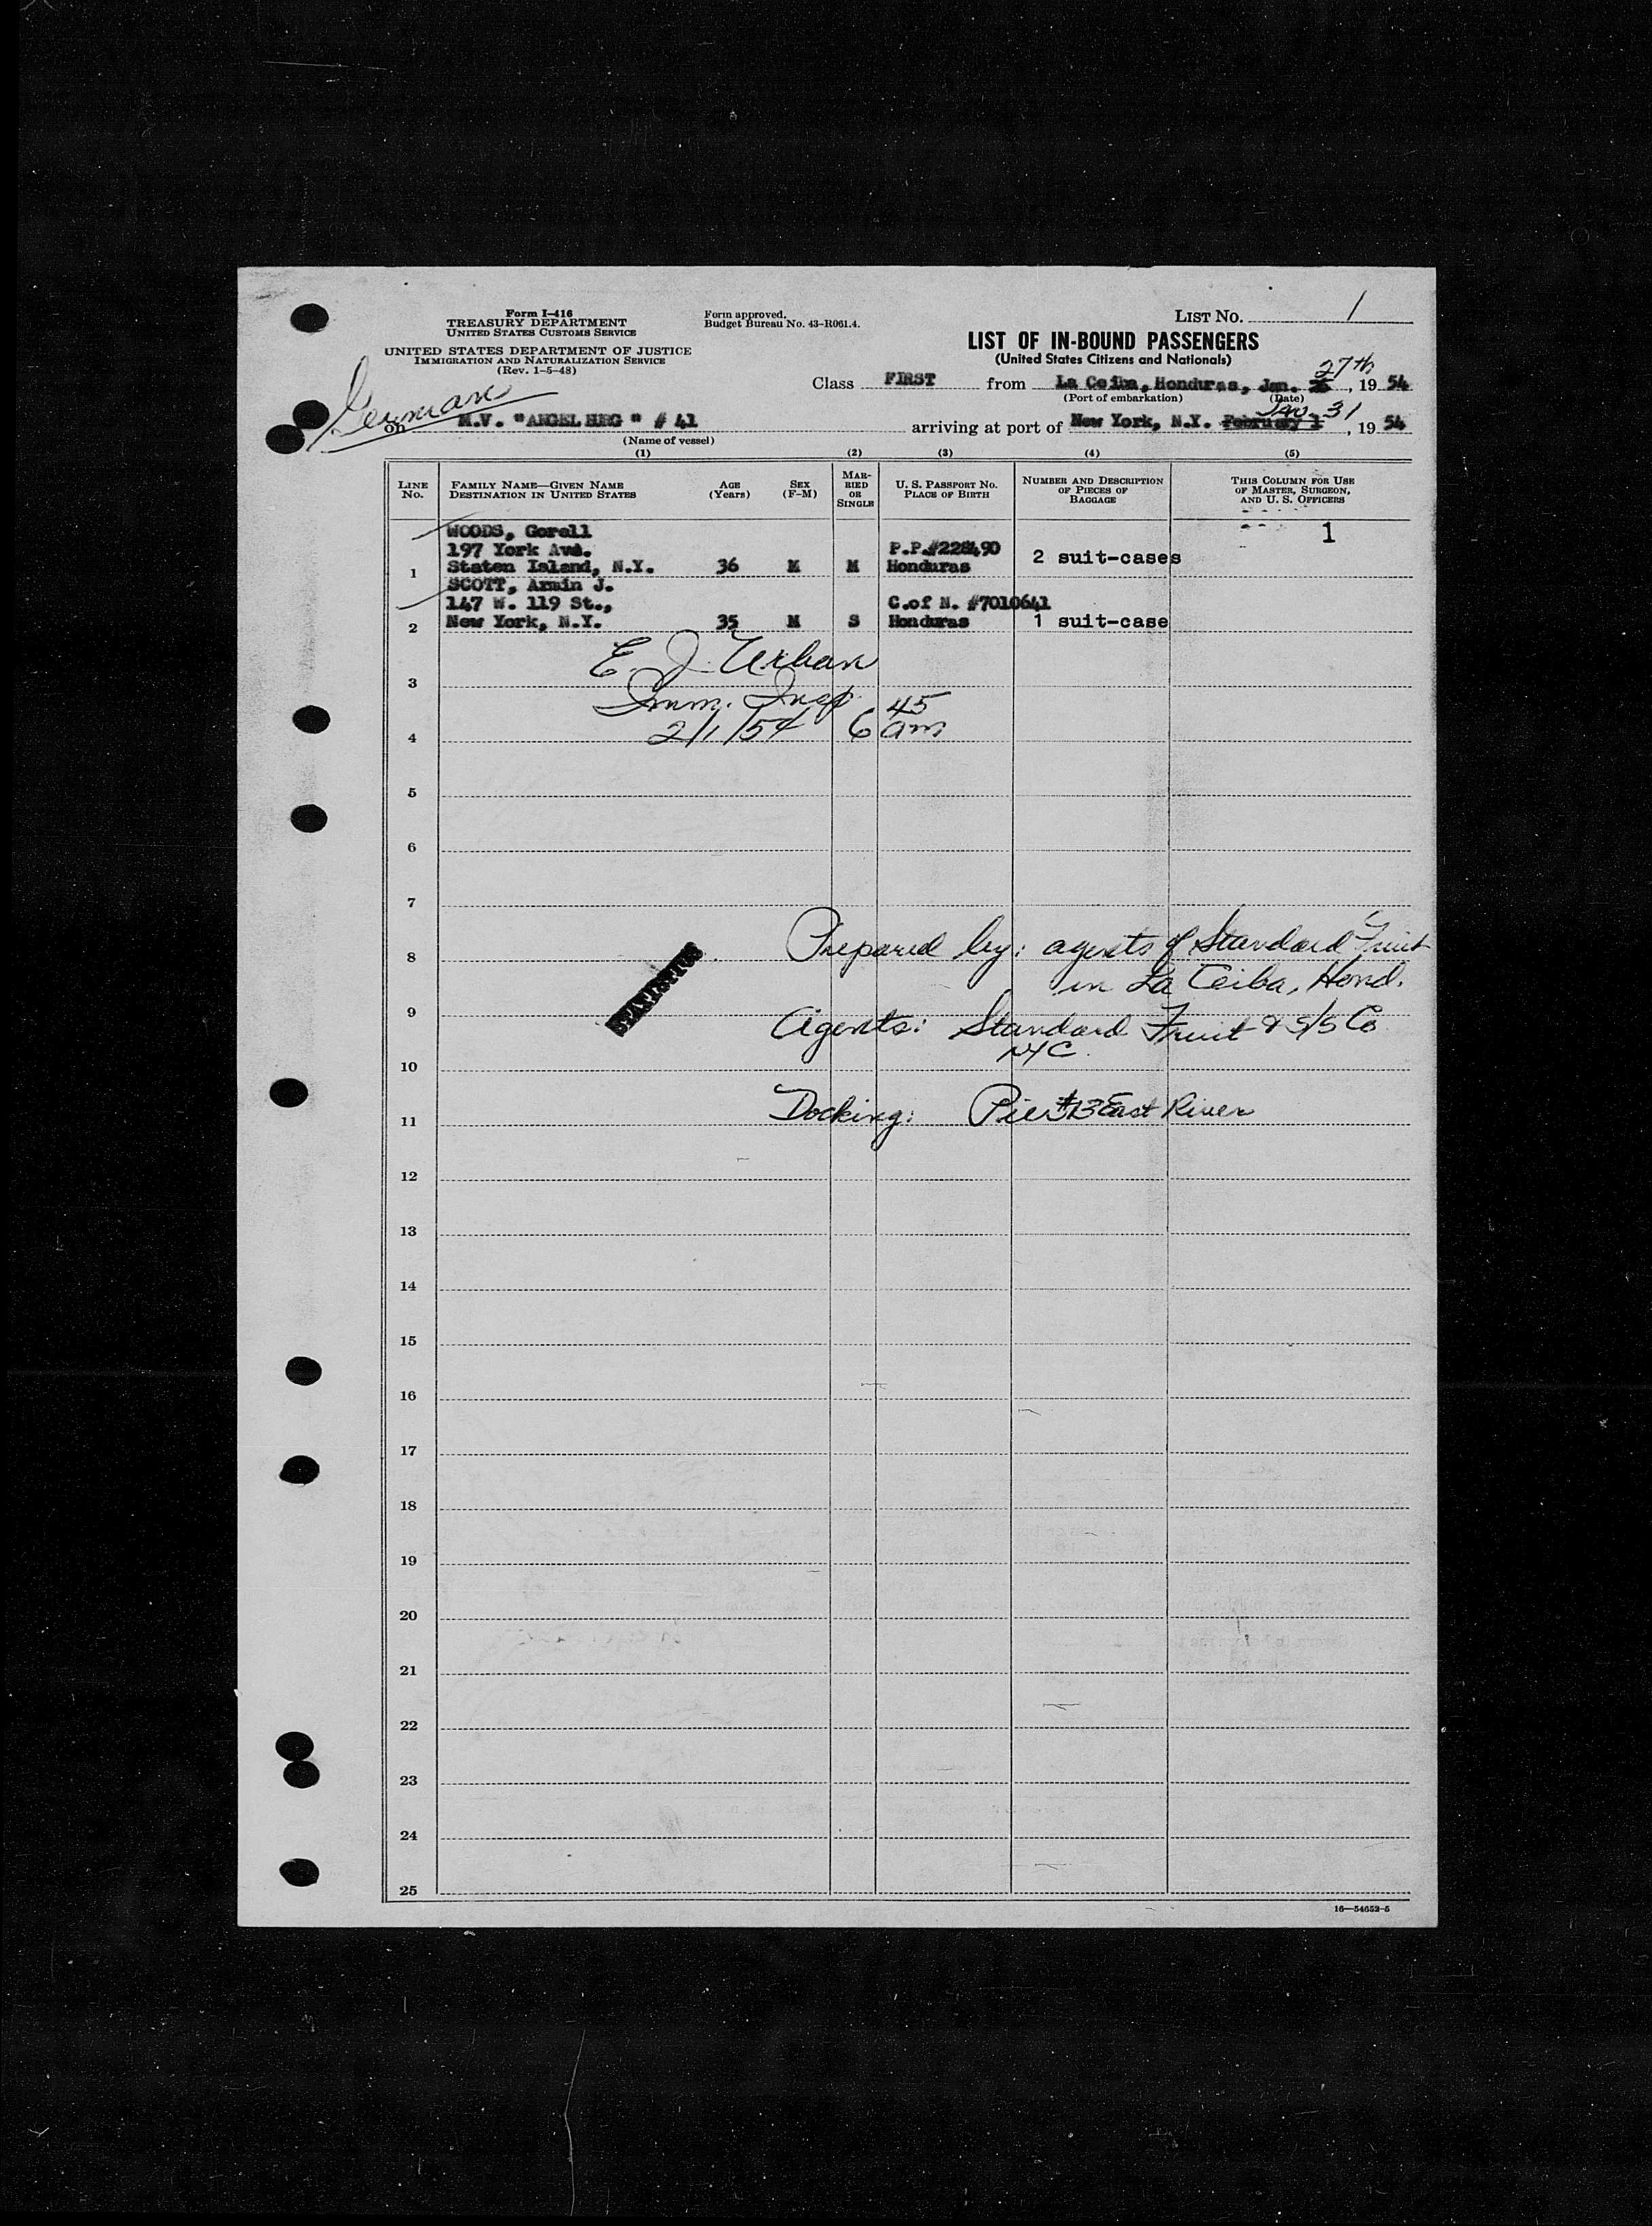 Form I-416
TREASURY DEPARTMENT
UNITED STATES CUSTOMS SERVICE
UNITED STATES DEPARTMENT OF JUSTICE
IMMIGRATION AND NATURALIZATION SERVICE
(Rev. 1-5-48)
Form approved.
Budget Bureau No. 43-R061.4.
LIST NO. 1
LIST OF IN-BOUND PASSENGERS
(United States Citizens and Nationals)
27th
Class FIRST from La Ceiba, Honduras, Jan. , 19 54
(Port of embarkation) (Date)
German
Jan. 31
on M.V. "ANGELBURG" # 41 arriving at port of New York, N.Y. February 1 , 19 54
(Name of vessel)
(1) (2) (3) (4) (5)
LINE NO. FAMILY NAME—GIVEN NAME DESTINATION IN UNITED STATES AGE (Years) SEX (F-M) MARRIED OR SINGLE U. S. PASSPORT NO. PLACE OF BIRTH NUMBER AND DESCRIPTION OF PIECES OF BAGGAGE THIS COLUMN FOR USE OF MASTER, SURGEON, AND U. S. OFFICERS
WOODS, Gorell 1
197 York Ave. P.P.#228490 2 suit-cases
1 Staten Island, N.Y. 36 M M Honduras
SCOTT, Armin J.
147 W. 119 St., C.of N. #7010641
2 New York, N.Y. 35 M S Honduras 1 suit-case
E. J. Urban
3
Imm. Insp. 45
4 2/1/54 6 am
5
6
7
8 Prepared by: agents of Standard Fruit
in La Ceiba, Hond.
STATISTICS
9 Agents: Standard Fruit & S/S Co
NYC.
10
11 Docking: Pier #13 East River
12
13
14
15
16
17
18
19
20
21
22
23
24
25
16—54652-5